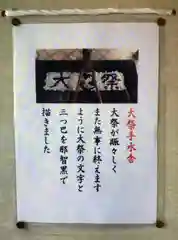 大祭
大祭手水舎
大祭が賑々しく
また無事に終えます
ように大祭の文字と
三つ巴を那智黒で
描きました